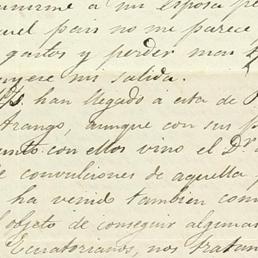 unirme a mi esposa pe
uel pais no me parece
gastos y perder mas t
nyere mi salida.
han llegado a esta de P
trango, aunque con sus p
unto con ellos vino el Dr
de convulciones de aquella p
ha venido tambien com
l objeto de conseguir algunas
Ecuatorianos, nos tratan